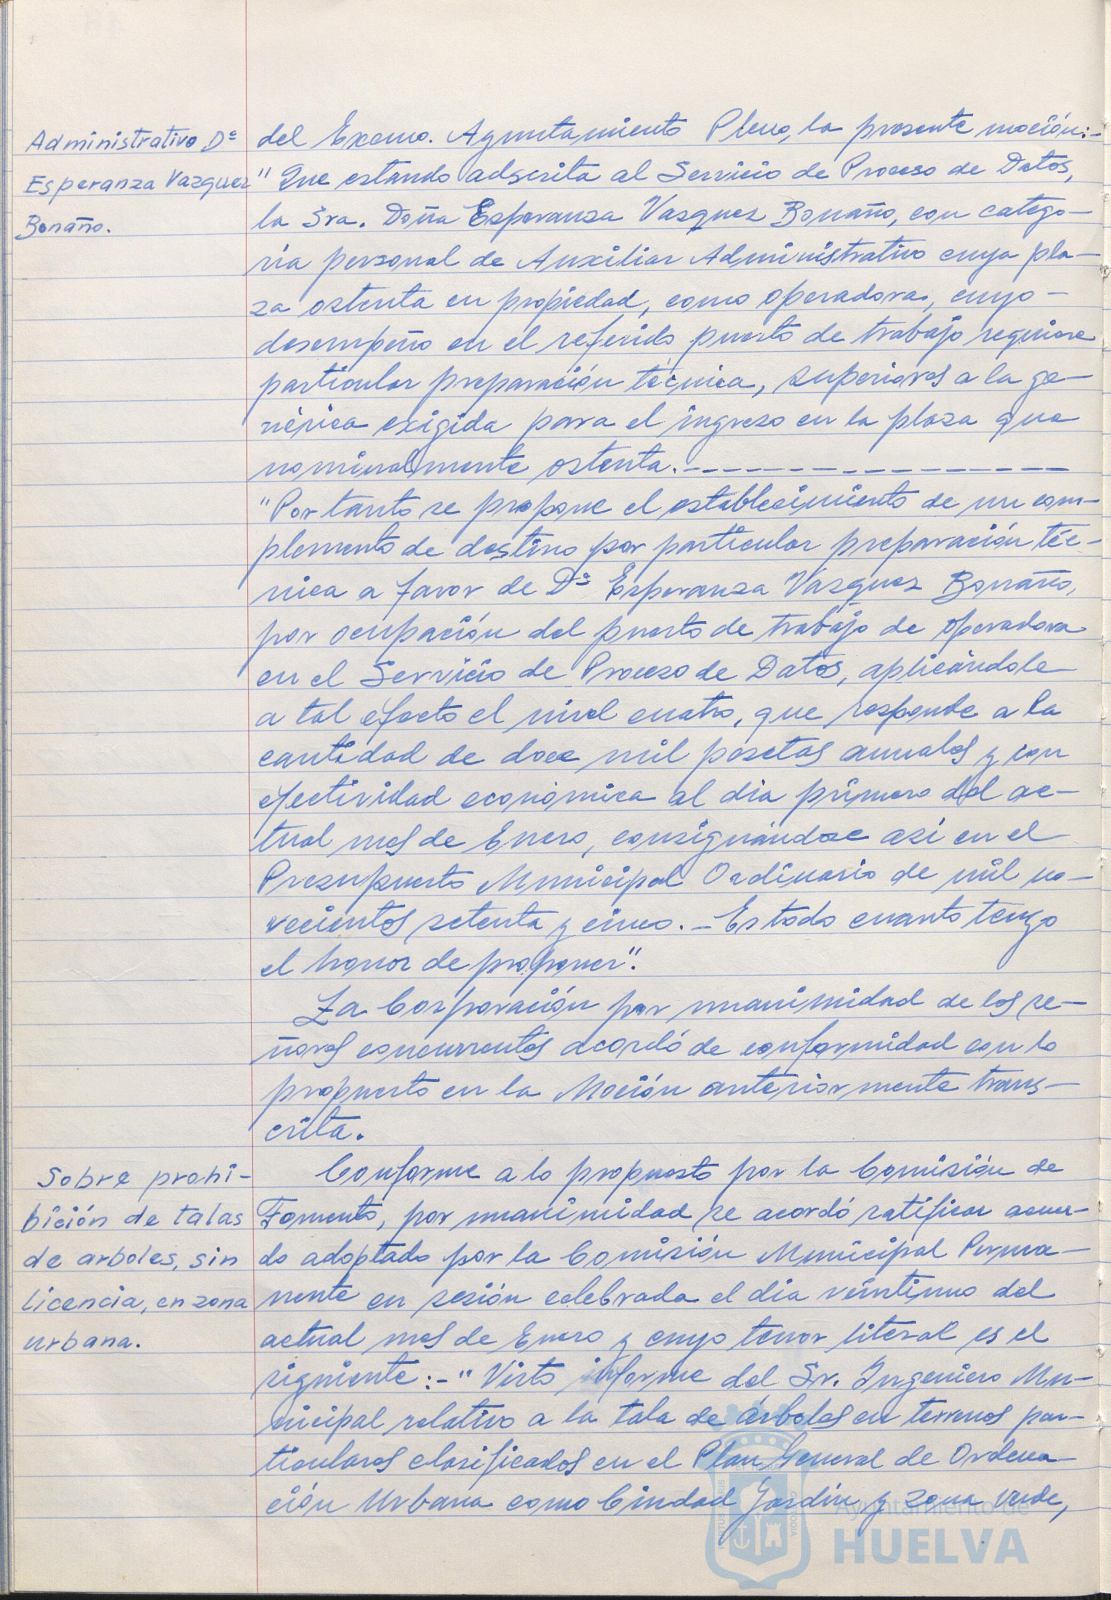 Administrativo Dª
Esperanza Vazquez
Bonaño.
del Excmo. Ayuntamiento Pleno, la presente moción:-
" Que estando adscrita al Servicio de Proceso de Datos,
la Sra. Doña Esperanza Vazquez Bonaño, con catego-
ria personal de Auxiliar Administrativo cuya pla-
za ostenta en propiedad, como operadora, cuyo-
desempeño en el referido puesto de trabajo requiere
particular preparación técnica, superiores a la ge-
nérica exigida para el ingreso en la plaza que
nominalmente ostenta.-
"Por tanto se propone el establecimiento de un com-
plemento de destino por particular preparación téc-
nica a favor de Dª Esperanza Vazquez Bonaño,
por ocupación del puesto de trabajo de operadora
en el Servicio de Proceso de Datos, aplicándole
a tal efecto el nivel cuatro, que responde a la
cantidad de doce mil pesetas anuales y con
efectividad económica al dia primero del ac-
tual mes de Enero, consignándose asi en el
Presupuesto Municipal Ordinario de mil no-
vecientos setenta y cinco.- Es todo cuanto tengo
el honor de proponer".
La Corporación por unanimidad de los se-
ñores concurrentes acordó de conformidad con lo
propuesto en la Moción anteriormente trans-
crita.
Sobre prohi-
bición de talas
de arboles, sin
licencia, en zona
urbana.
Conforme a lo propuesto por la Comisión de
Fomento, por unanimidad se acordó ratificar acuer-
do adoptado por la Comisión Municipal Perma-
nente en sesión celebrada el dia veintiuno del
actual mes de Enero y cuyo tenor literal es el
siguiente:-" Visto informe del Sr. Ingeniero Mu-
nicipal relativo a la tala de árboles en terrenos par-
ticulares clasificados en el Plan General de Ordena-
ción Urbana como Ciudad Jardín y zona verde,
Ayuntamiento de
HUELVA